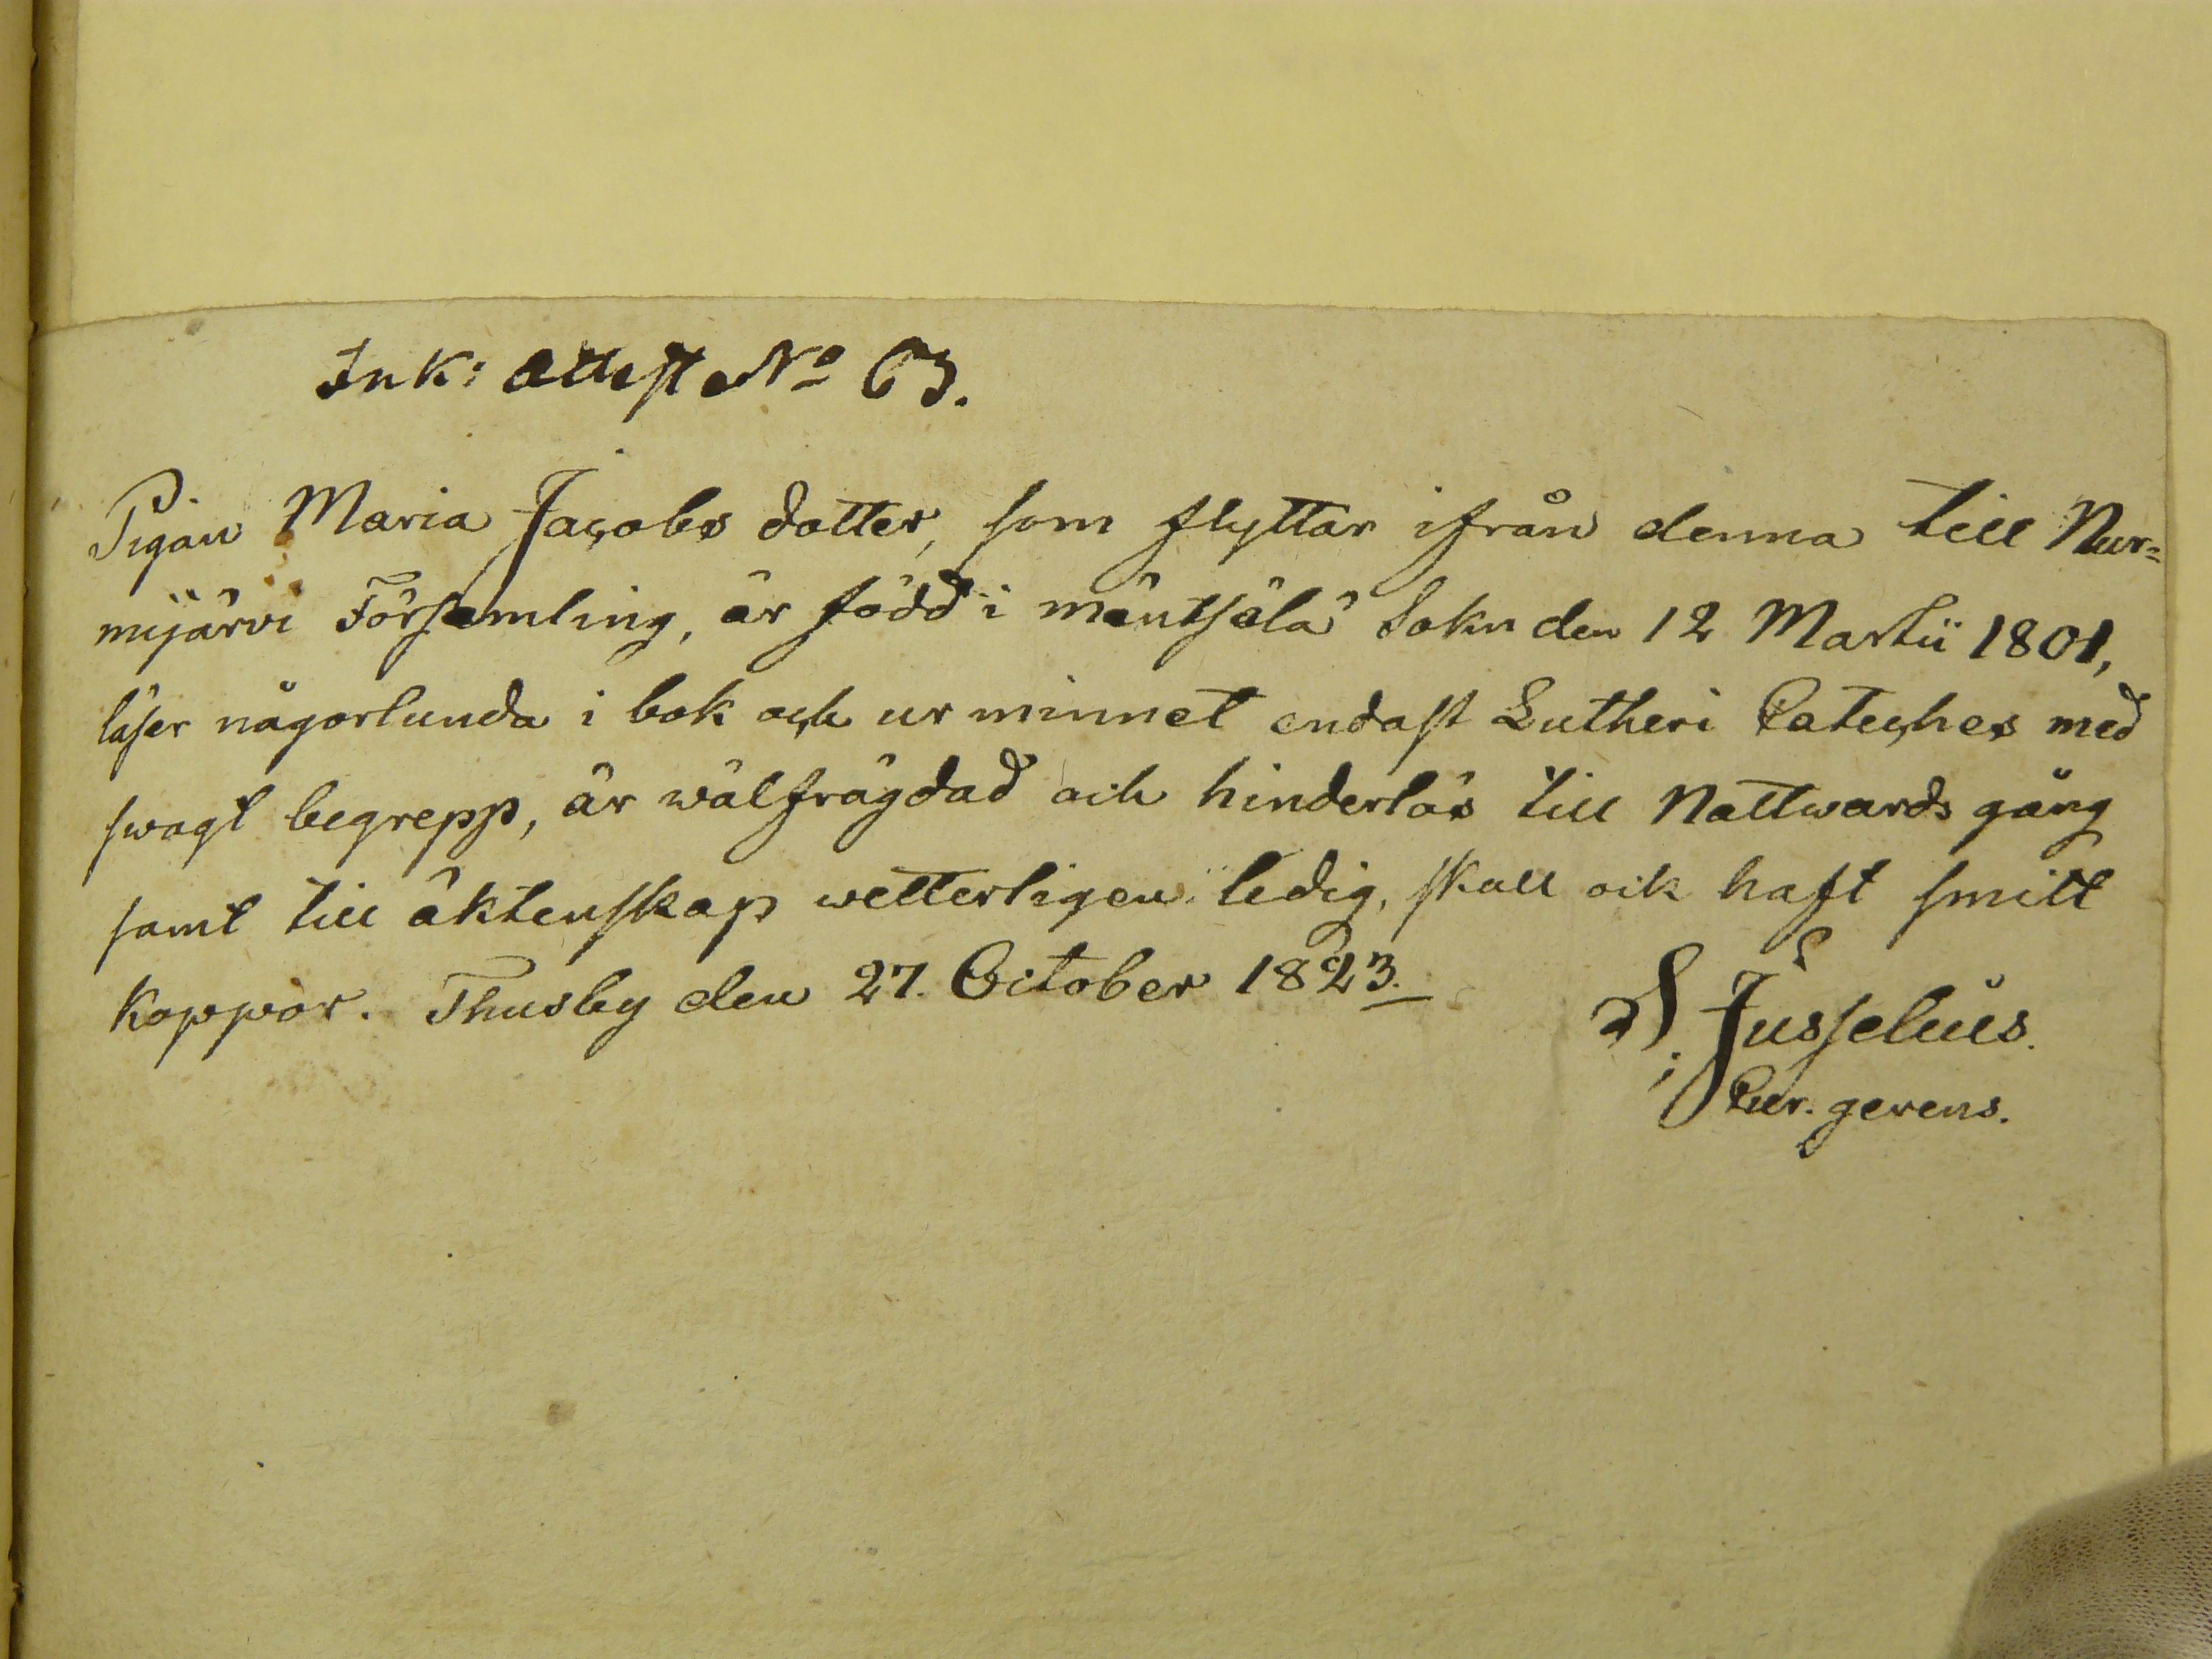 Ink: Attest No 63.
Pigan Maria Jacobs dotter, som flyttar ifrån denna till Nur=
mijärvi Församling, är född i mäntsälä Sokn den 12 Martii 1801,
läser någorlunda i bok och ur minnet endast Lutheri Cateches med
swagt begrepp, är wälfrägdad och hinderlös till Nattwards gång
samt till äktenskap wetterligen ledig, skall ock haft smitt
koppor. Thusby den 27. October 1823.
Jusselius.
Cur. gerens.